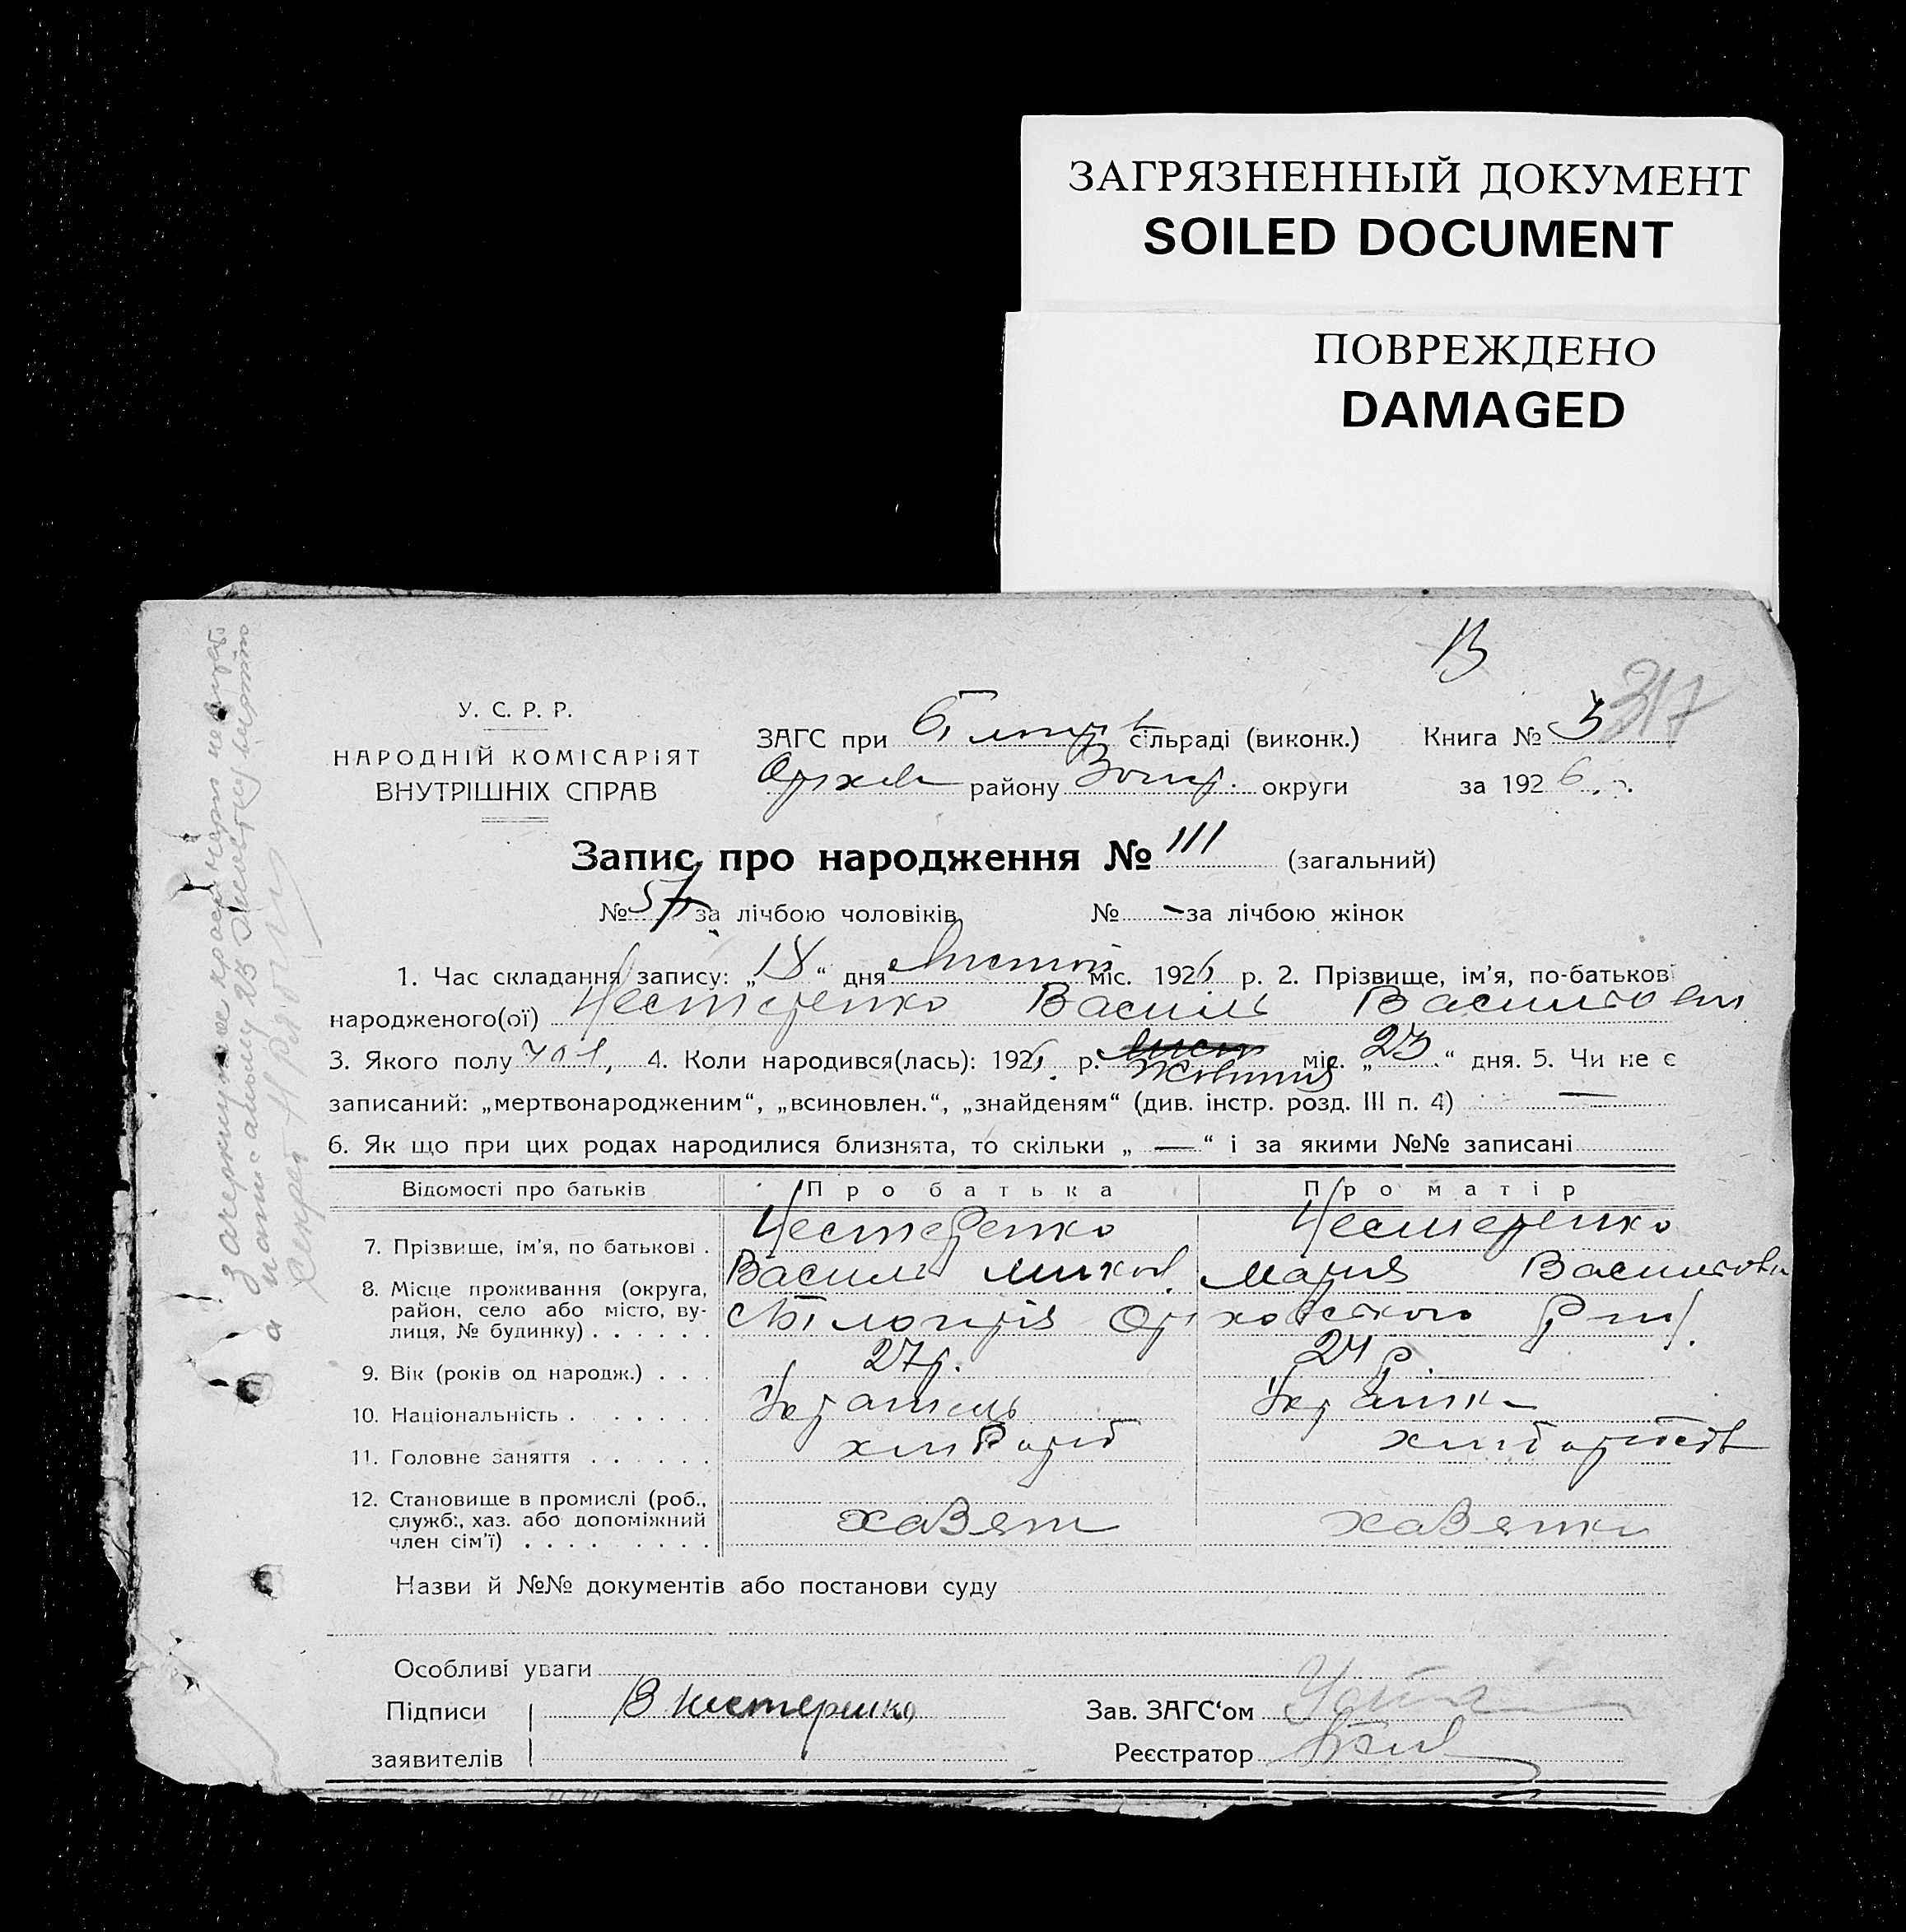 ЗАГРЯЗНЕННЫЙ ДОКУМЕНТ
SOILED DOCUMENT
ПОВРЕЖДЕНО
DAMAGED
317
У. С. Р. Р.
НАРОДНІЙ КОМІСАРІЯТ
ВНУТРІШНІХ СПРАВ
ЗАГС при сільраді (виконк.)
Книга № 3
Оріхов району Запор. округи
за 1926 р.
Запис про народження № 111 (загальний)
№ 57 за лічбою чоловіків № – за лічбою жінок
1. Час складання запису: „18“ дня міс. 1926 р. 2. Прізвище, ім’я, по-батькові
народженого(ої) Нестеренко Василь Васильович
3. Якого полу чол, 4. Коли народився(лась): 1926 р. лист Жовтня міс. „23“ дня. 5. Чи не є
записаний: „мертвонародженим“, „всиновлен.“, „знайденям“ (див. інстр. розд. III п. 4) —
6. Як що при цих родах народилися близнята, то скільки „ — “ і за якими №№ записані
Відомості про батьків
Про батька
Про матір
7. Прізвище, ім’я, по батькові .
Нестеренко
Василь Микол.
Нестеренко
Мария Васильовн
8. Місце проживання (округа,
район, село або місто, ву-
лиця, № будинку) . . . . . .
с Білогірія Оріховського
9. Вік (років од народж.) . . .
27 р.
24 р.
10. Національність . . . . . .
Українець
Українк
11. Головне заняття . . . . . .
хлібороб
хліборобств
12. Становище в промислі (роб.,
служб., хаз. або допоміжний
член сім’ї) . . . . . . . . .
хазяін
хазяйка
Назви й №№ документів або постанови суду
Особливі уваги
Підписи
заявителів
В Нестеренко
Зав. ЗАГС‘ом
Реєстратор